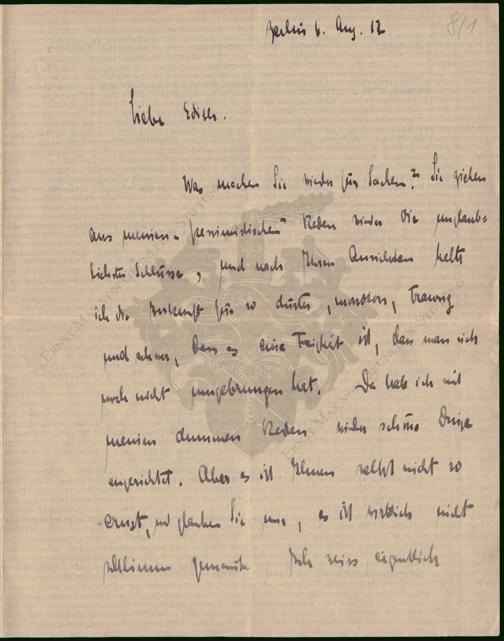 8/1
Berlin 6. Aug. 12
Liebe Edith.
Was machen Sie wieder für Sachen? Sie ziehen
aus meinen „pessimistischen" Reden wieder die unglaub=
lichsten Schlüsse, und nach Ihren Ansichten halte
ich die Zukunft für so düster, monoton, traurig
und schwer, dass es eine Feigheit ist, dass man sich
noch nicht umgebrungen hat. Da hab ich mit
meinen dummen Reden wieder schöne Dinge
angerichtet. Aber es ist Ihnen selbst nicht so
ernst, und glauben Sie mir, es ist wirklich nicht
schlimm gemeint. Ich weiss eigentlich